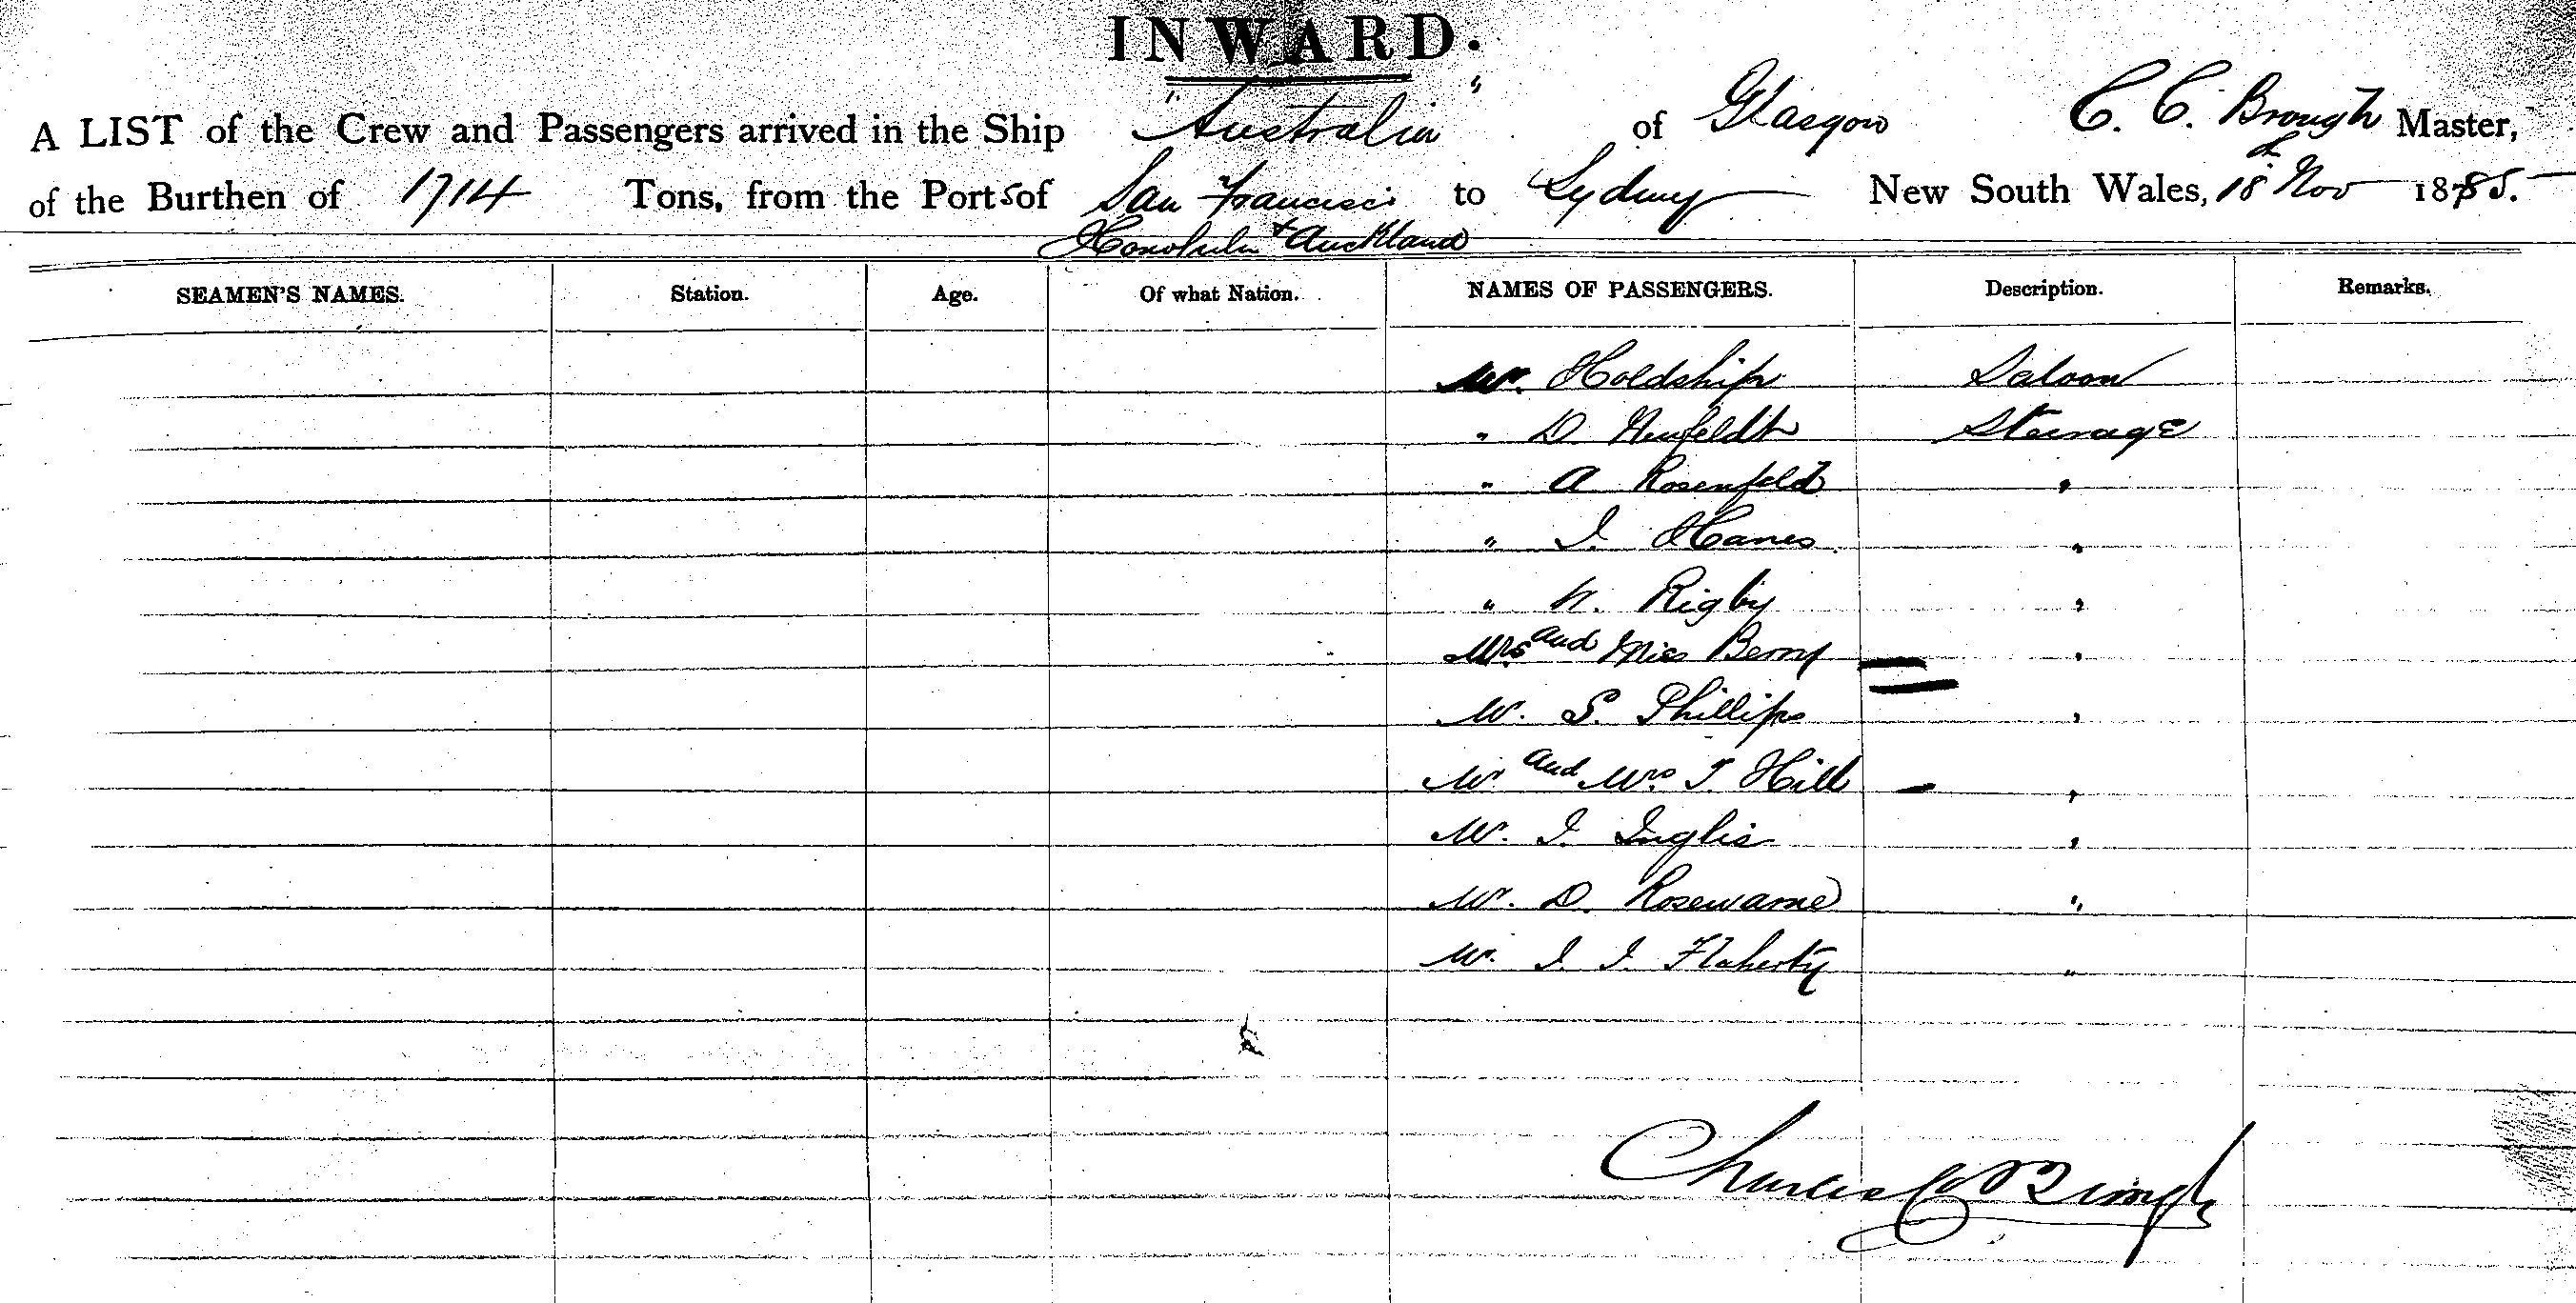 INWARD.
A LIST of the Crew and Passengers arrived in the Ship "Australia" of Glasgow C. C. Brough Master,
of the Burthen of 1714 Tons, from the Ports of San Francisco to Sydney New South Wales, 18 Nov 1885.
Honolulu + Auckland
SEAMEN'S NAMES. Station. Age. Of what Nation. NAMES OF PASSENGERS. Description. Remarks.
Mr. Holdship Saloon
" D. Neufeldt Steerage
" A Rosenfeld "
" J. Hanes "
" W. Rigby "
Mrs and Miss Berry "
Mr. S. Phillips "
Mr and Mrs T. Hill "
Mr. J. Inglis "
Mr. D. Rosewarne "
Mr. J. J. Flaherty "
Charles C Brough